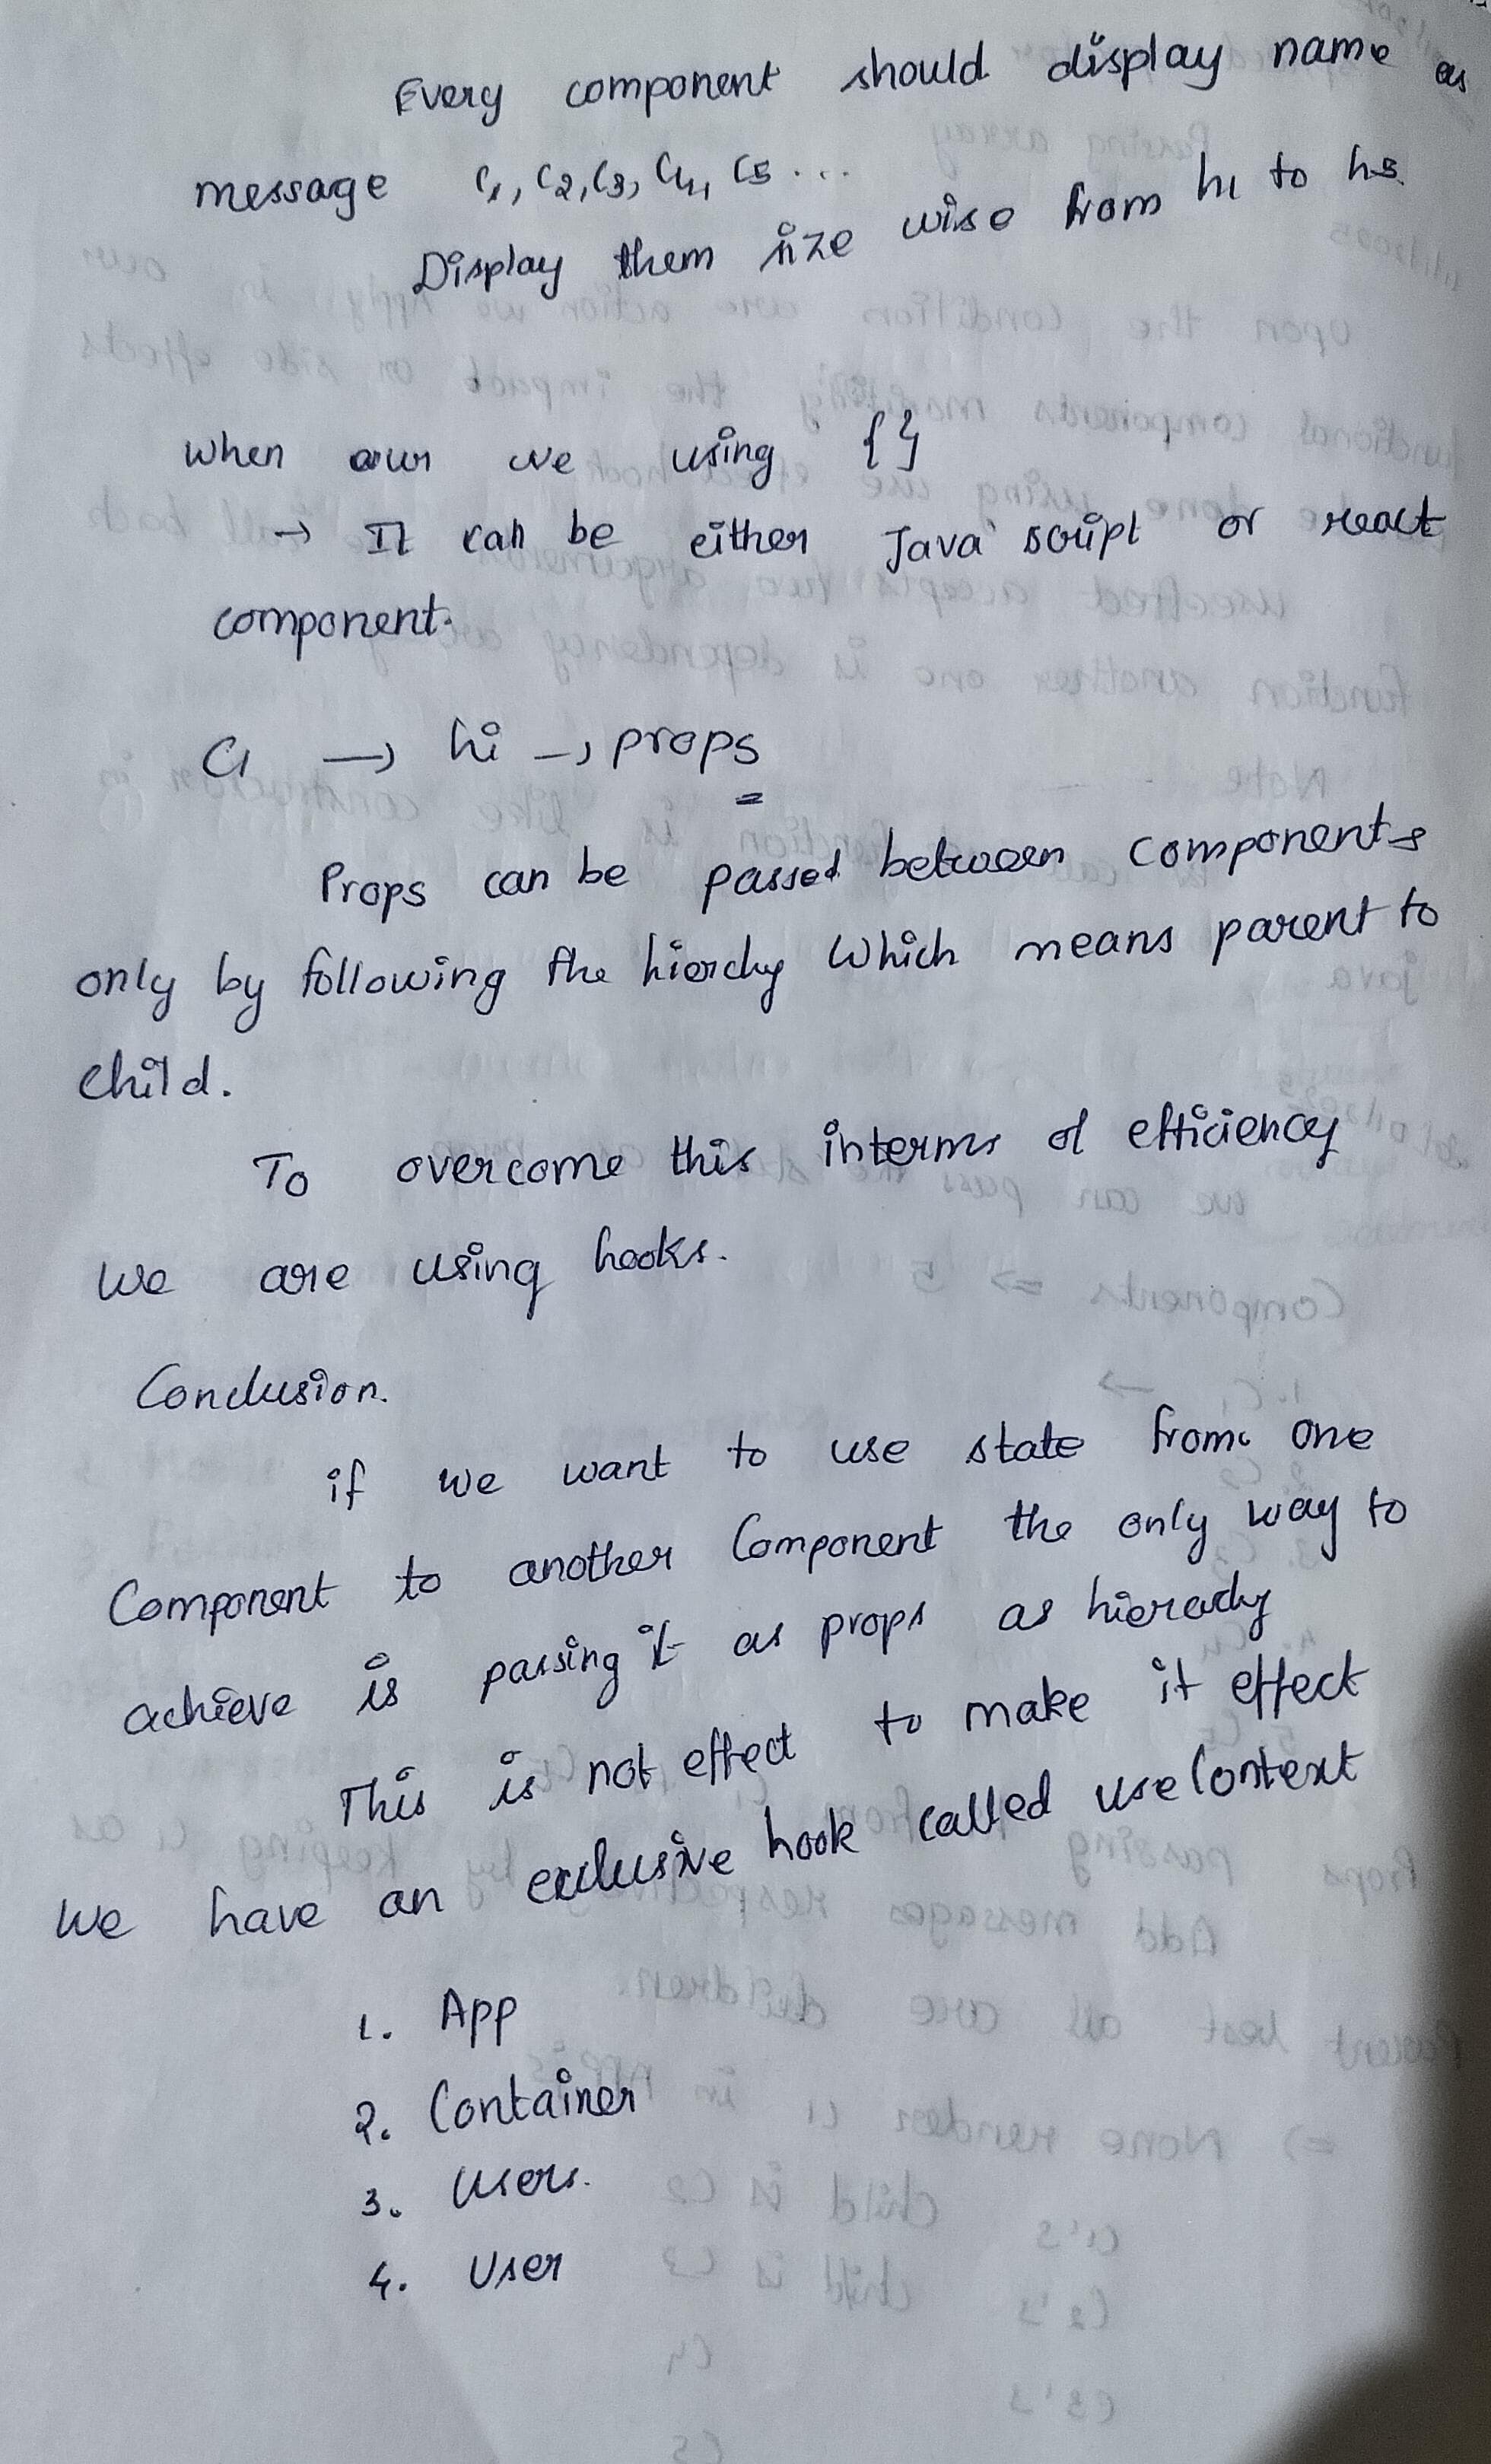 Every component should display name as
message C1, C2, C3, C4, C5 ...
Display them size wise from h1 to h5.
when are we using { }
→ It can be either Java script or react
component.
C1 → hi → props
Props can be passed between components
only by following the hierchy Which means parent to
child.
To overcome this interms of efficiency
We are using hooks.
Conclusion.
if we want to use state from one
Component to another Component the only way to
achieve is passing it as props as hierachy
This is not effect to make it effect
We have an exclusive hook called useContext
1. App
2. Container
3. Users.
4. User